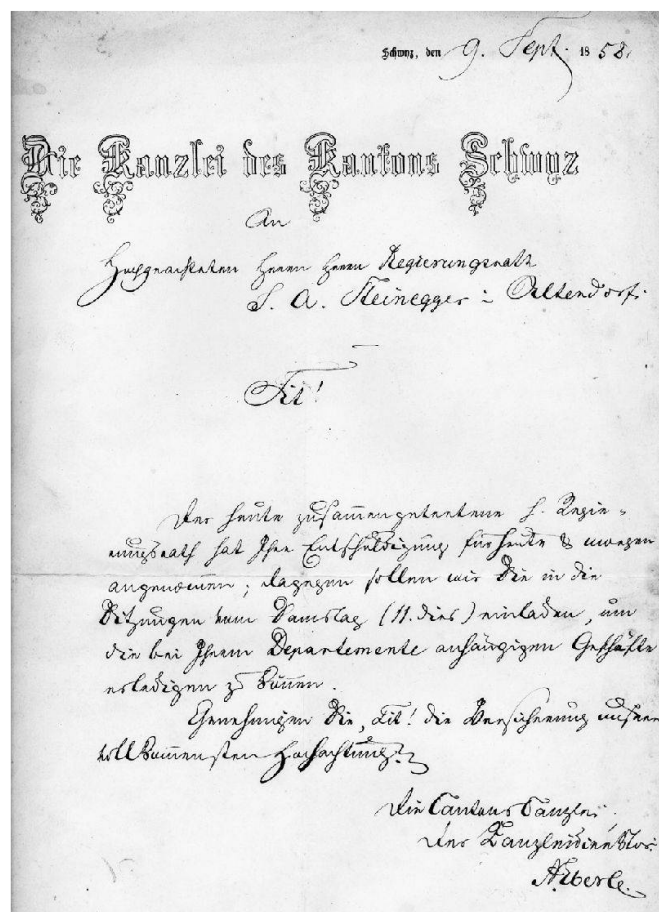 Schwyz, den 9. Sept. 1858.
Die Kanzlei des Kantons Schwyz
An
Hochgeachteten Herrn Herrn Regierungsrath
S. A. Steinegger in Altendorf.
Tit!
Der heute zusammengetretene h. Regie-
rungsrath hat Ihre Entschuldigung für heute & morgen
angenommen; dagegen sollen wir Sie in die
Sitzungen vom Samstag (11. dies) einladen, um
die bei Ihrem Departemente anhängigen Geschäfte
erledigen zu können.
Genehmigen Sie, Tit! die Versicherung unserer
vollkommensten Hochachtung.
Die Cantonskanzlei,
Der Kanzleidirektor: